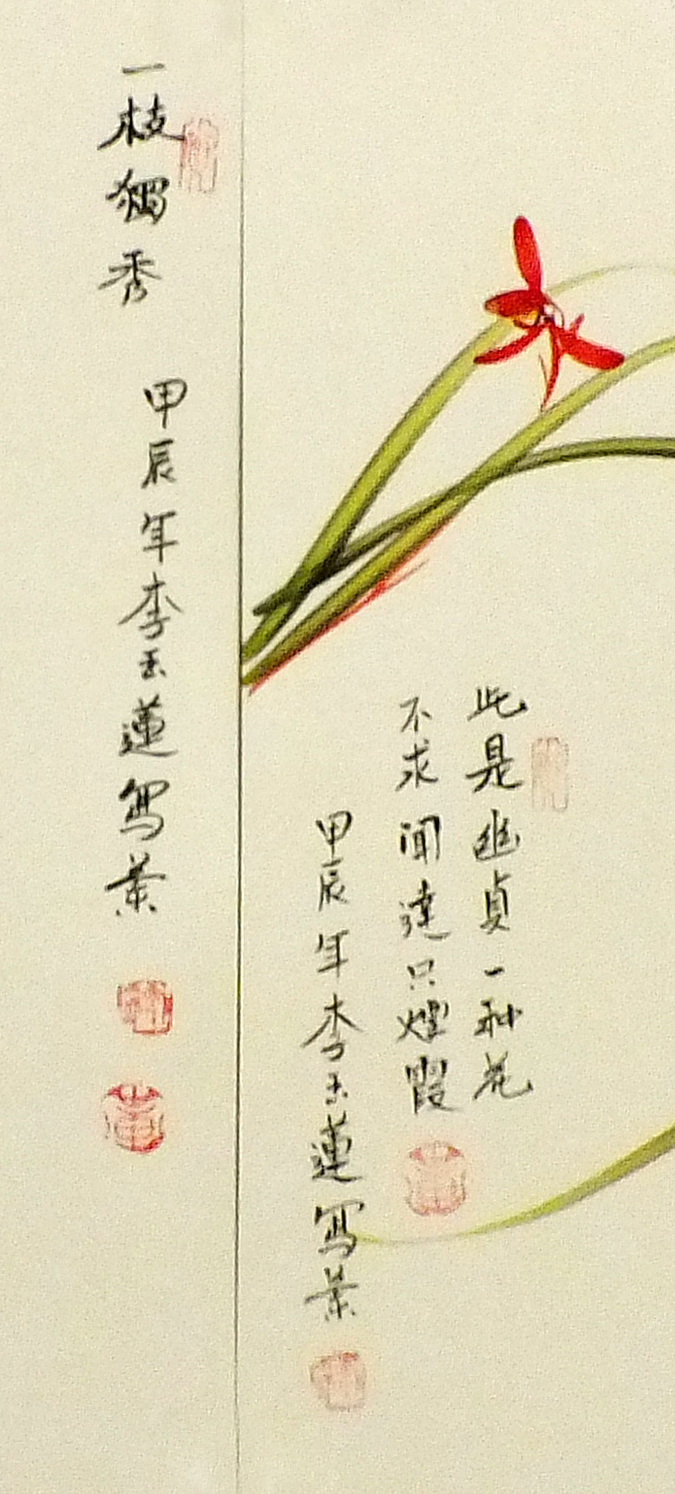 此是幽貞一种花
不求聞達只煙霞
甲辰年李玉蓮寫
一枝獨秀
甲辰年李玉蓮寫